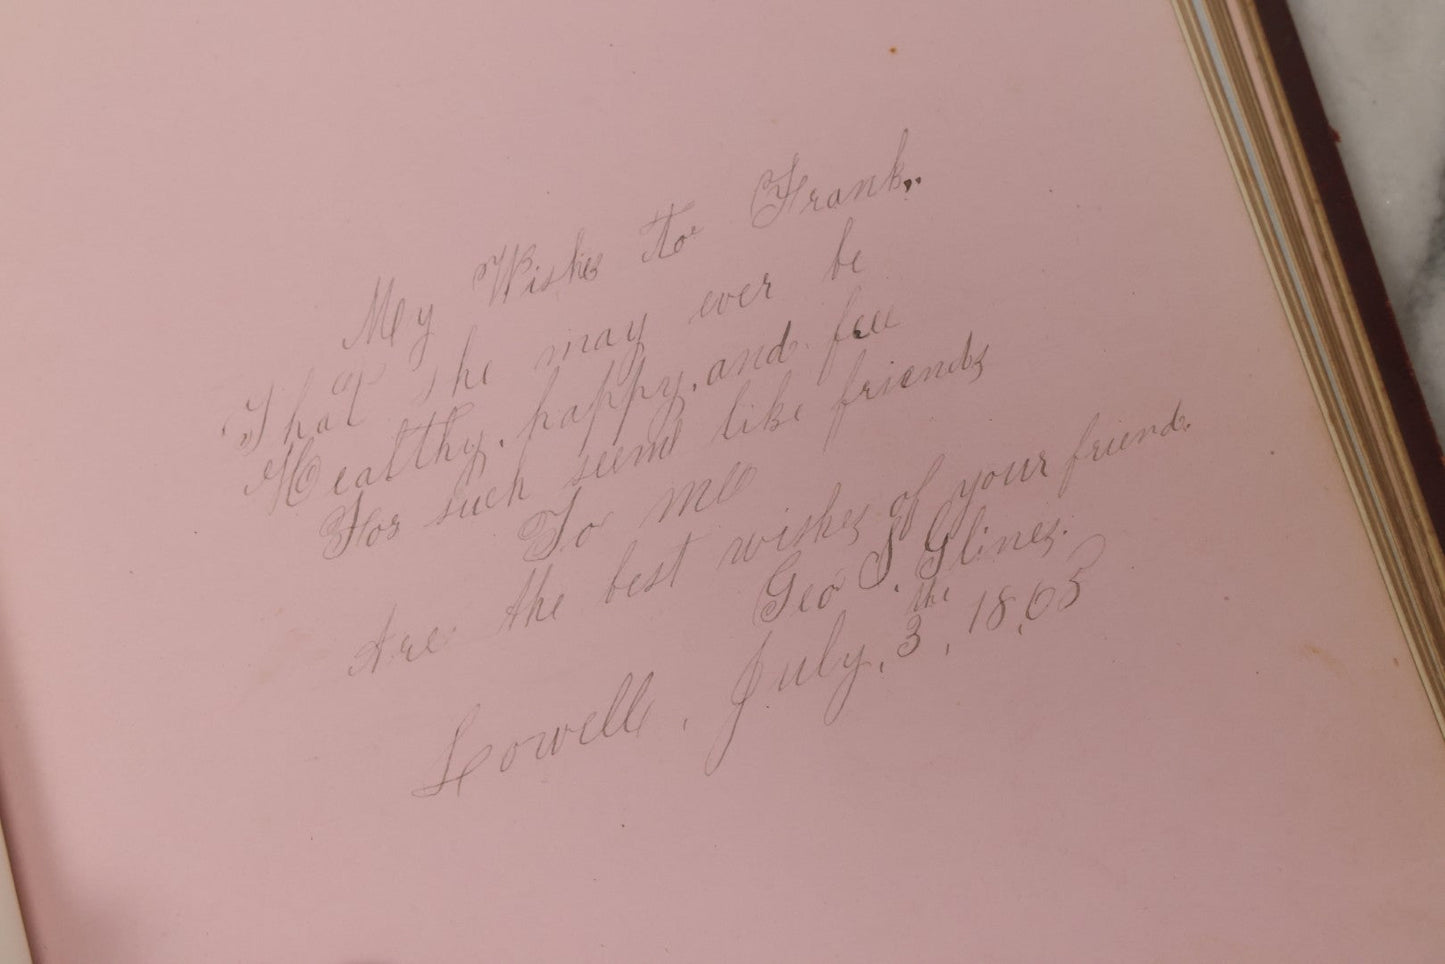 My Wishes to Frank.,
That he may ever be
Healthy, happy, and free
For such seem like friends
To me
Are the best wishes of your friend.
Geo S. Glines.
Lowell, July, 3, the 18,65